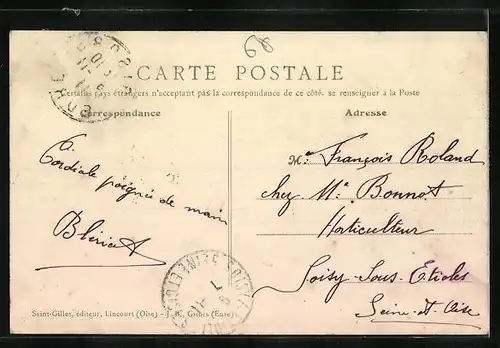 69
CARTE POSTALE
Certains pays étrangers n'acceptant pas la correspondance de ce côté, se renseigner à la Poste
Correspondance
Adresse
Cordiale poignée de main
Blériot
Mr François Roland
chez Mr Bonnot
Horticulteur
Soisy-Sous-Etioles
Seine-et-Oise
Saint-Gilles, éditeur, Lincourt (Oise) — J. B., Gisors (Eure)